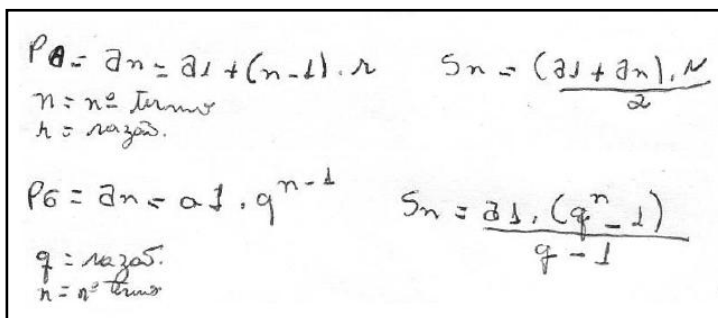 PA = an = a1 + (n-1) . r
Sn = (a1 + an) . N / 2
n = nº termo
r = razão.
PG = an = a1 . q^n-1
Sn = a1 . (q^n - 1) / q - 1
q = razão.
n = nº termo